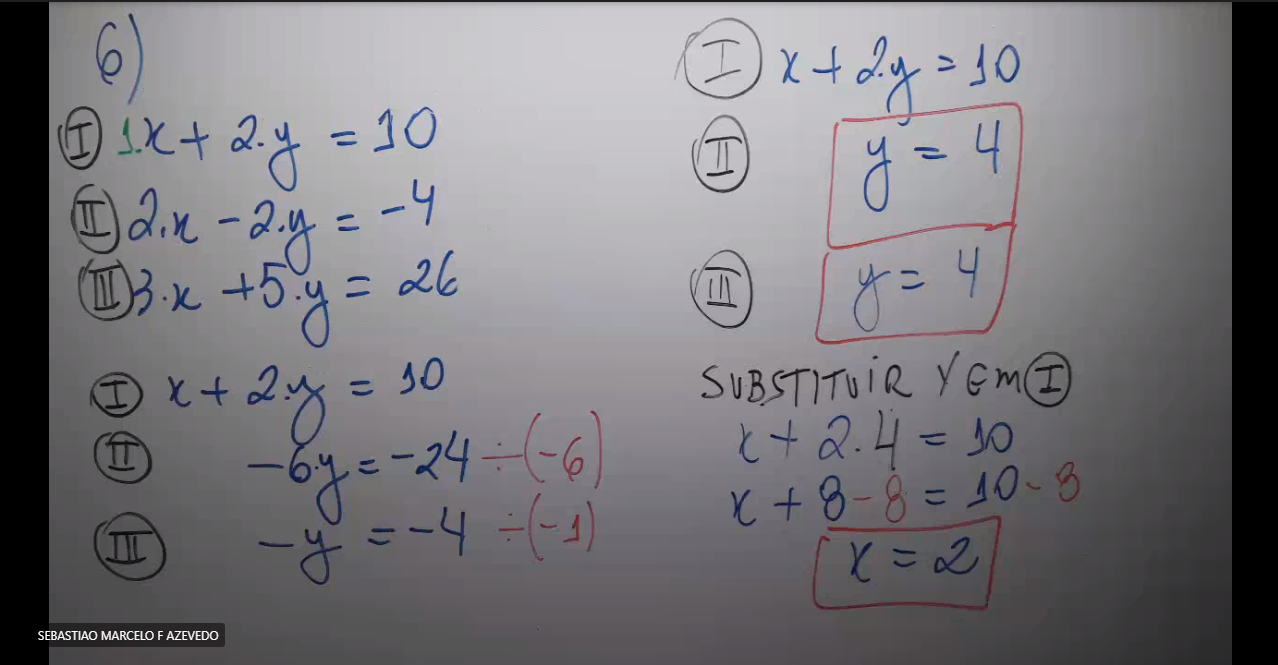 6)
I 1.x + 2.y = 10
II 2.x - 2.y = -4
III 3.x + 5.y = 26
I x + 2.y = 10
II -6.y = -24 ÷(-6)
III -y = -4 ÷(-1)
I x + 2.y = 10
II y = 4
III y = 4
SUBSTITUIR Y EM I
x + 2.4 = 10
x + 8 - 8 = 10 - 8
x = 2
SEBASTIAO MARCELO F AZEVEDO